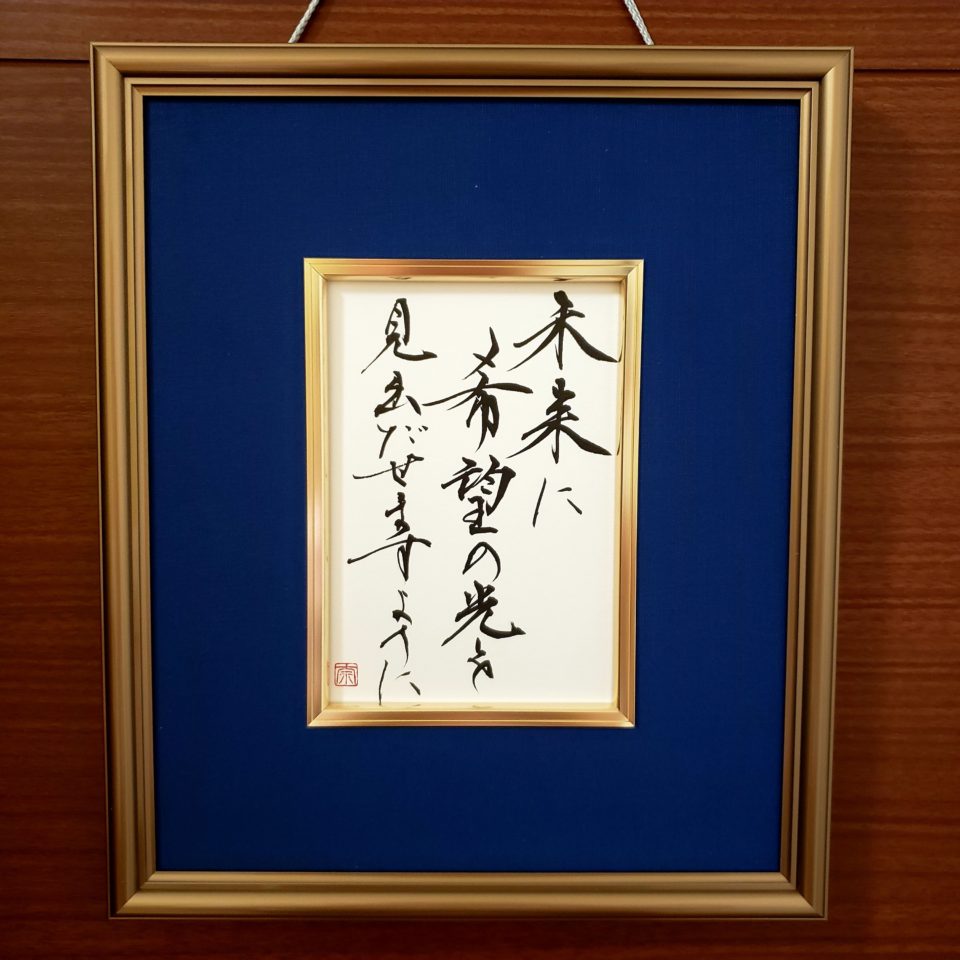 未来に
希望の光を
見出だせますように、